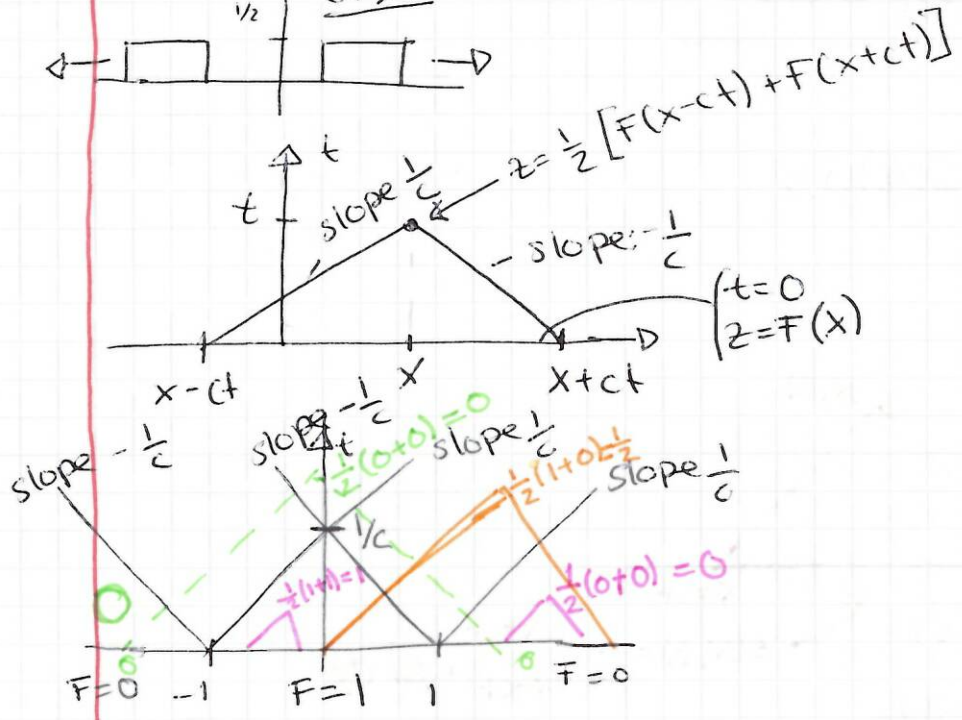 1/2
z = 1/2 [F(x-ct) + F(x+ct)]
t
t
slope 1/c
- slope: - 1/c
t = 0
z = F(x)
x-ct
x
x+ct
slope - 1/c
slope - 1/c
t
1/2(0+0)=0
slope 1/c
1/2(1+0)=1/2
slope 1/c
1/c
1/2(1+1)=1
1/2(0+0) = 0
0
0
0
F=0
-1
F=1
1
F=0